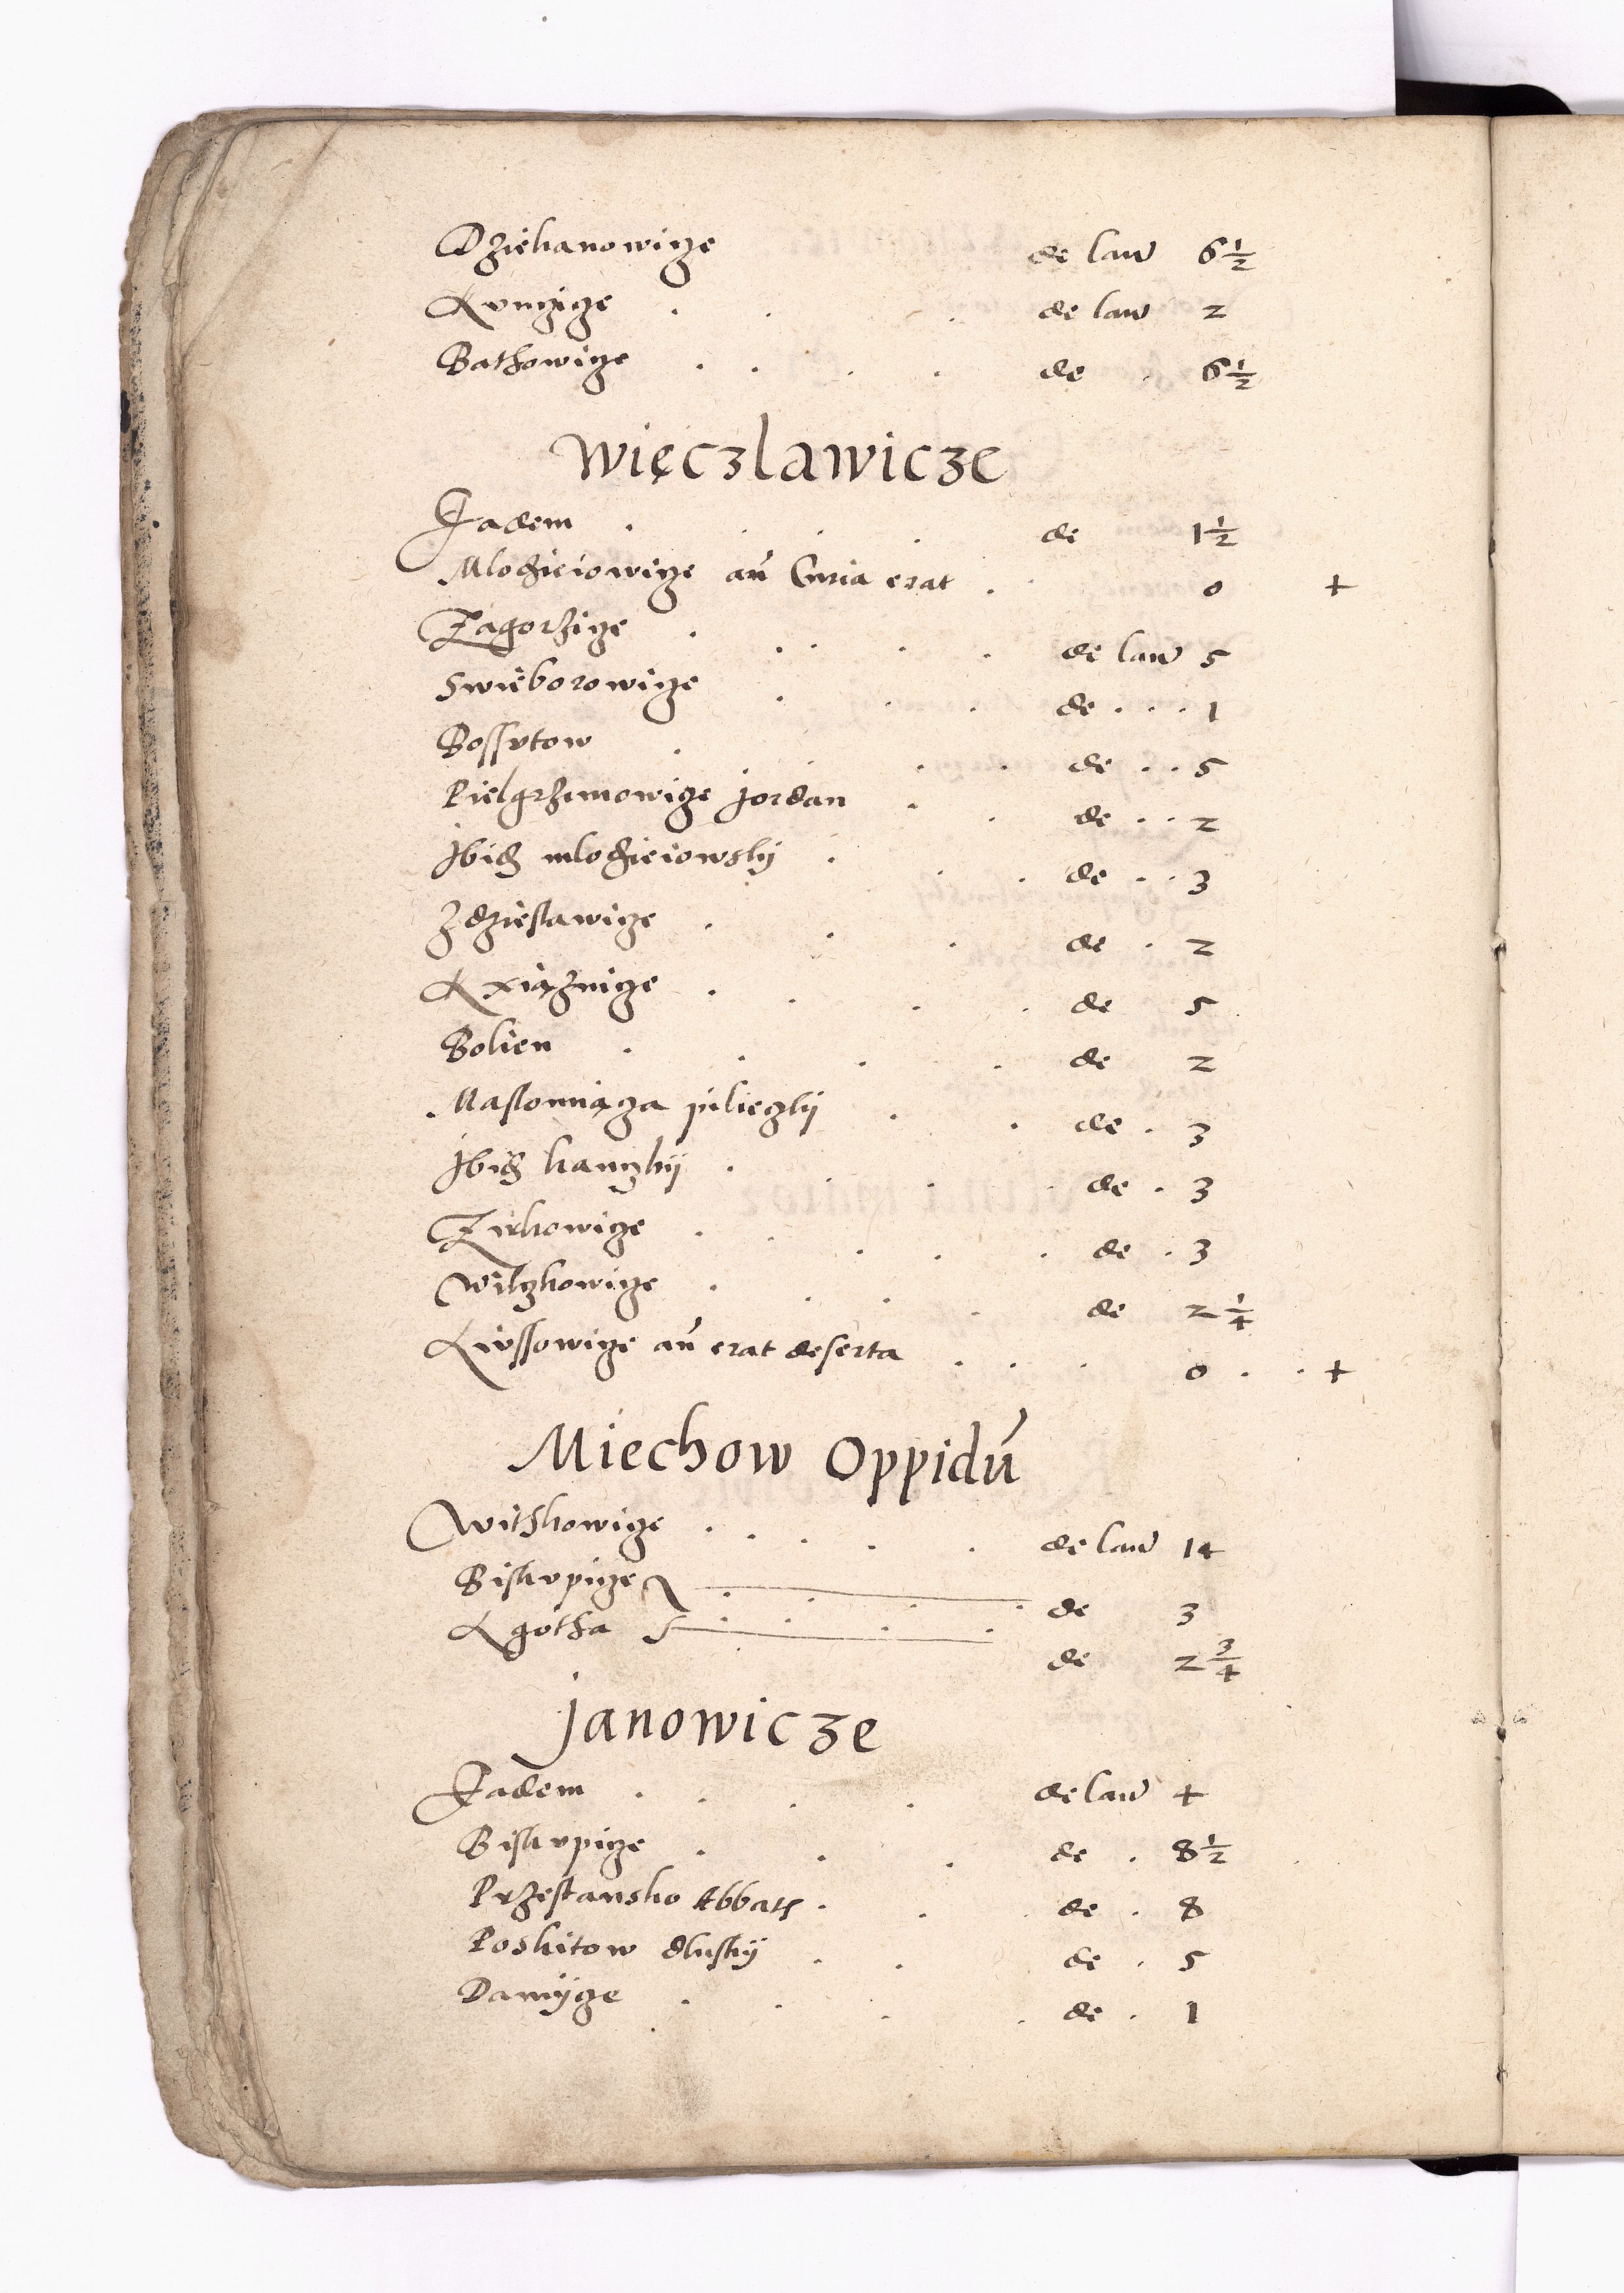 Dziekanowicze de lan̄ 6 1/2
Kvnczicze . . . de lan̄ 2
Bathowicze . . . . de . 6 1/2
Więczlawicze
Eadem . . . . de 1 1/2
Mlodzieiowicze an̄ Curia erat . . 0 +
Zagorzicze . . . . . de lan̄ 5
Swieborowicze . . . de . . . 1
Bossvtow . . . de . . 5
Pielgrzimowicze Jordan . . de . . 2
Ibid̄ mlodzieiowsky . . . de . . 3
Zdzieslawicze . . . de . 2
Kxiąznicze . . . . de 5
Bolien . . . . de 2
Maslomiącza pilieczky . . de . 3
Ibid̄ kamyky . . . . de . 3
Zirkowicze . . . . . de . 3
Wilczkowicze . . . . de 2 1/4
Kirssowicze an̄ erat deserta . . . 0 . . +
Miechow Oppidū
Withkowicze . . . . . de lan̄ 14
Biskvpicze . . . . de 3
Lgotha . . . . . de 2 3/4
Janowicze
Eadem . . . . de lan̄ 4
Biskvpicze . . . de . 8 1/2
Przeslansko Abbatis . . . de . 8
Poskitow dlusky . . de . 5
Damycze . . . . de . 1